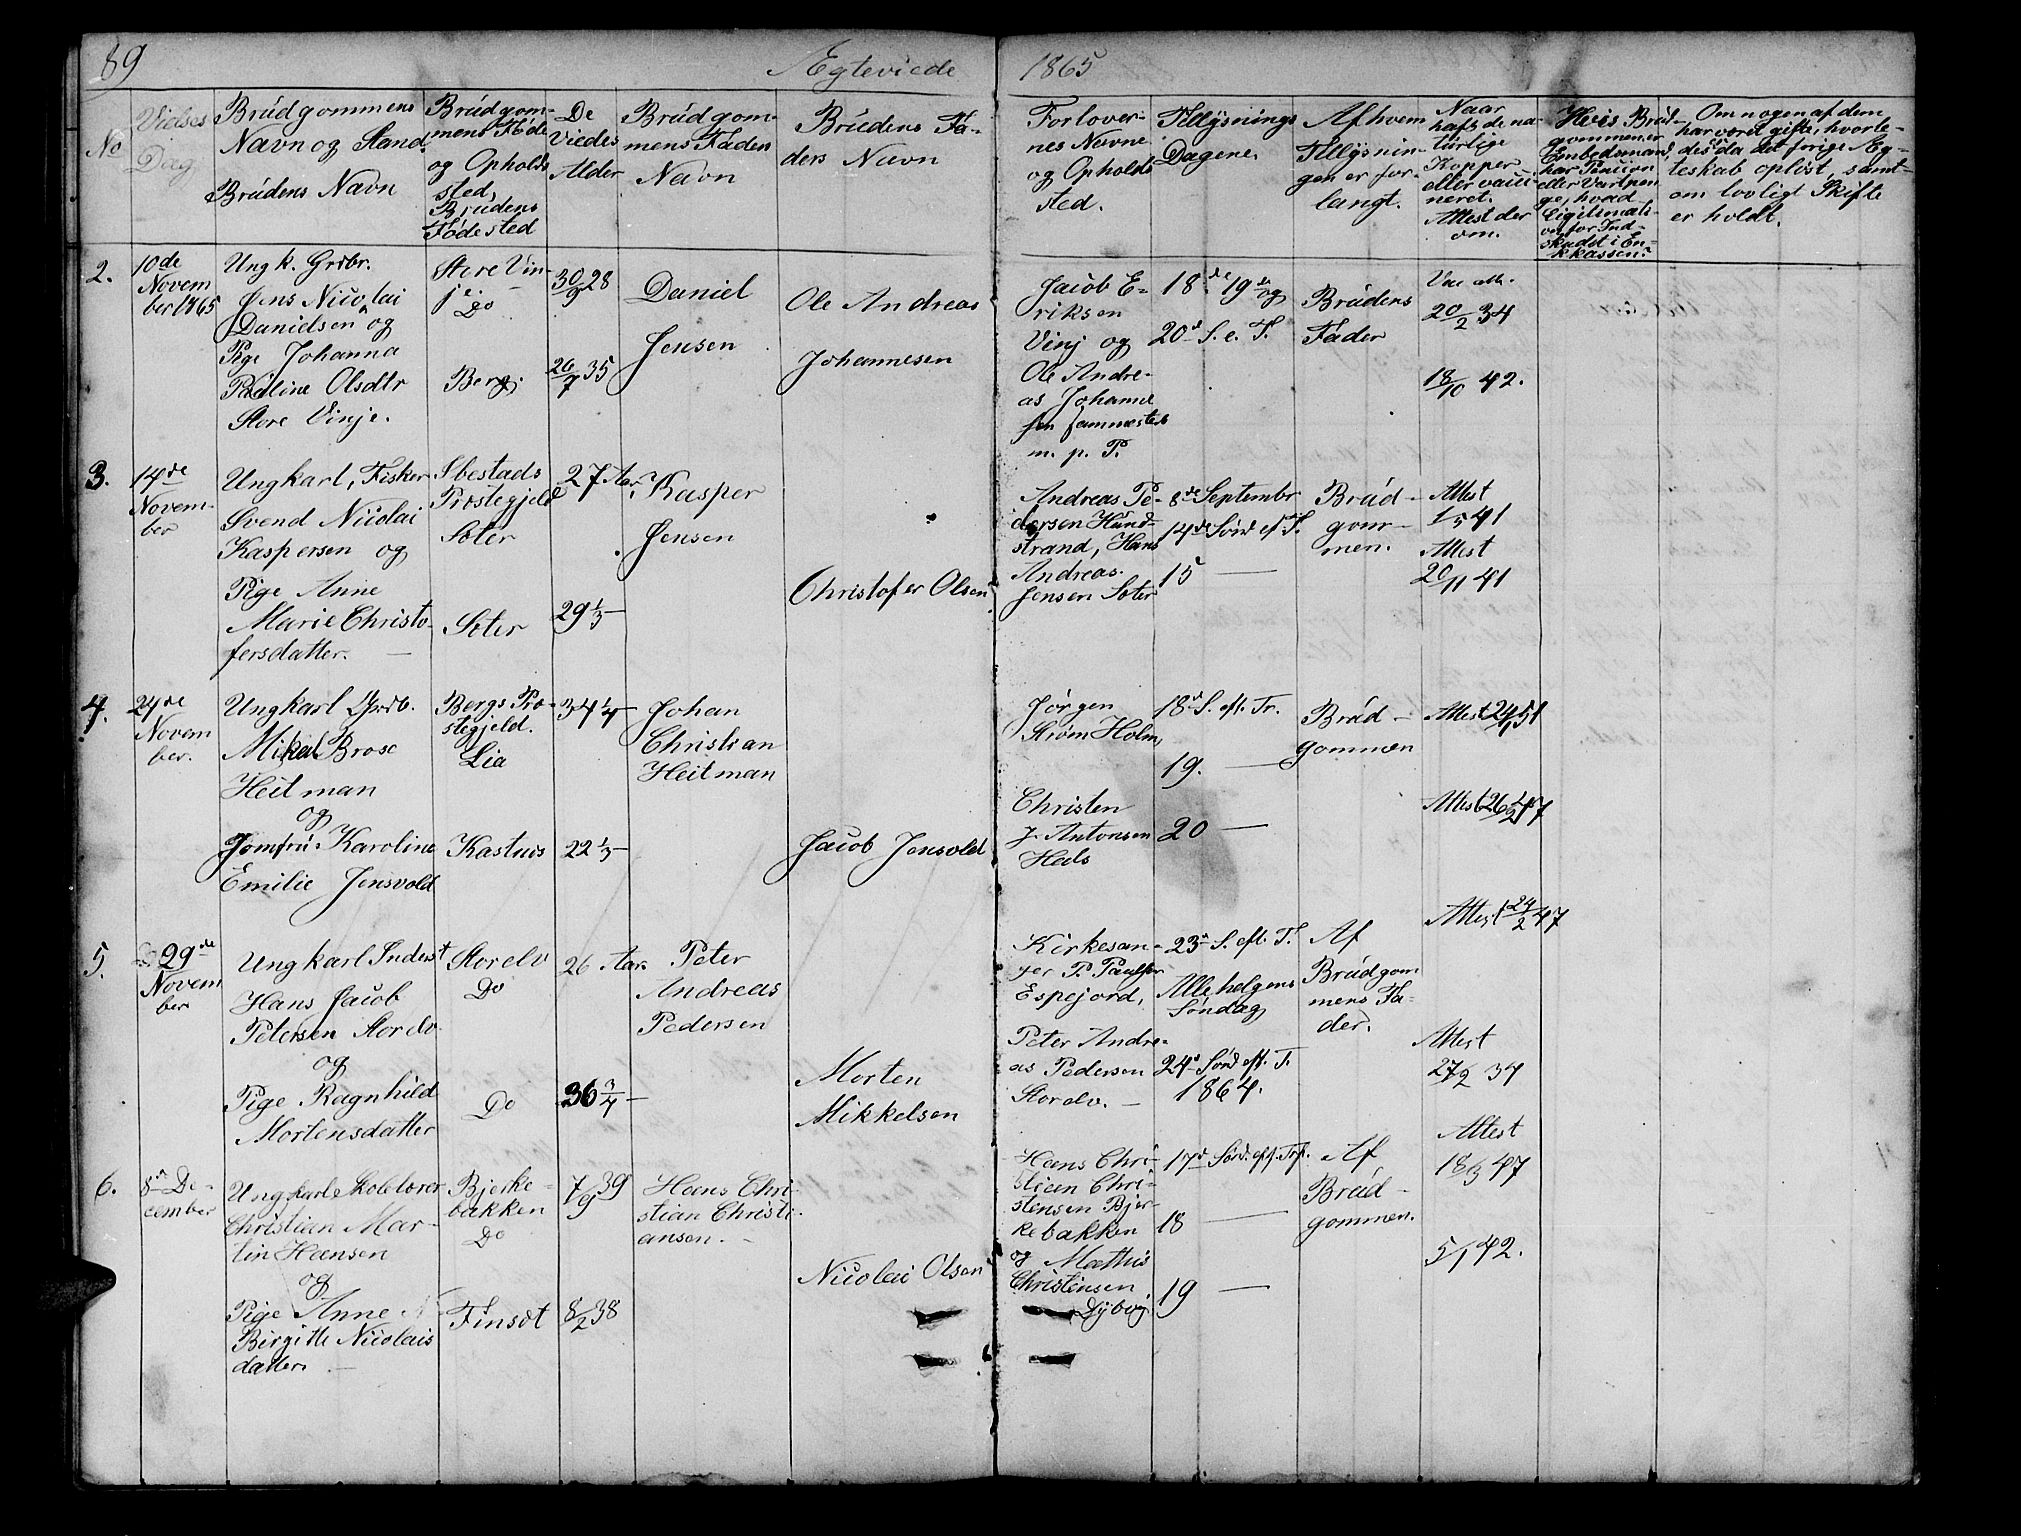 89
Ægteviede
1865
No
Vielses
Dag
Brudgommens
Navn og Stand
Brudens Navn
Brudgom-
mens Føde
og Opholds
sted,
Brudens
Fødested
De
Viedes
Alder
Brudgom-
mens Faders
Navn
Brudens Fa-
ders Navn
Forlover-
nes Navne
og Opholds
sted.
Tillysnings
Dagene.
Af hvem
Tillysnin-
gen er for-
langt.
Naar
haft de na-
turlige
Kopper
eller vacci-
neret.
Attest der
om.
Hvis Brud-
gommen er
Embedsmand,
har Pension
eller Vartpen
ge, hvad
Legitimati-
on for Ind-
skudet i En-
kekassen.
Om nogen af dem
har været gifte, hvorle-
des da det forige Æg-
teskab opløst, samt-
om lovligt Skifte
er holdt.
2.
10de
Novem
ber 1865
Ungk. Grdbr.
Jens Nicolai
Danielsen og
Pige Johanna
Pauline Olsdtr
Store Vinje.
Store Vin-
je.
Do
Berg.
30/9 28
26/7 35
Daniel
Jensen
Ole Andreas
Johannesen
Jacob E-
riksen
Vinj og
Ole Andre-
as Johanne
sen sammesteds
m. p. P.
18de 19de og
20de S. e. T.
Brudens
Fader
Vac att.
20/2 34
18/10 42.
3.
14de
Novem-
ber
Ungkarl, Fisker
Svend Nicolai
Kaspersen og
Pige Anne
Marie Christo-
fersdatter. —
Ibestads
Prestegjeld
Søter
Søter
27 Aar
29 1/3 —
Kasper
Jensen
Christofer Olsen
Andreas Pe-
dersen Hund-
strand, Hans
Andreas
Jensen Søter
8de Septembr
14de Sønd ef. T.
15 —
Brud-
gom-
men.
Attest
1/5 41
Attest
20/11 41
4.
24de
Novem
ber.
Ungkarl Grdb.
Mikal Brose
Heitman
og
Jomfru Karoline
Emilie Jensvold
Bergs Pre-
stegjeld.
Lia
Kastnes
34 1/4 —
22 1/3 —
Johan
Christian
Heitman
Jacob Jensvold
Jørgen
Strøm Holm,
Christen
J. Antonsen
Hals
18de S. eft. Tr.
19. —
20 —
Brud-
gommen
Attest 24/1 51
Attest 26/2 47
5.
29de
Novem
ber
Ungkarl Inderst
Hans Jacob
Petersen Storelv
og
Pige Ragnhild
Mortensdatter
Storelv
Do
Do
26 Aar.
36 3/4 —
Peter
Andreas
Pedersen
Morten
Mikkelsen
Kirkesan-
ger P. Paulsen
Espejord,
Peter Andre-
as Pedersen
Storelv. —
23de S. eft. T.
Allehelgens
Søndag
24de Sønd eft. T.
1864.
Af
Brudgom
mens Fa-
der.
Attest 24/2 47
Attest
27/2 34
6.
8de De-
cember
Ungkarl Skolelærer
Christian Mar-
tin Hansen
og
Pige Anne N
Birgitte Nicolais
datter. —
Bjerke-
bakken
Do
Finsæt
7/9 39
8/2 38
Hans Chri-
stian Christi-
ansen. —
Nicolai Olsen
Hans Chri-
stian Chri-
stensen Bjer-
kebakken
og Mathis
Christensen
Dybvig
17de Sønd. eft. Trf.
18 —
19 —
Af
Brud-
gommen.
Attest
18/3 47
5/1 42.